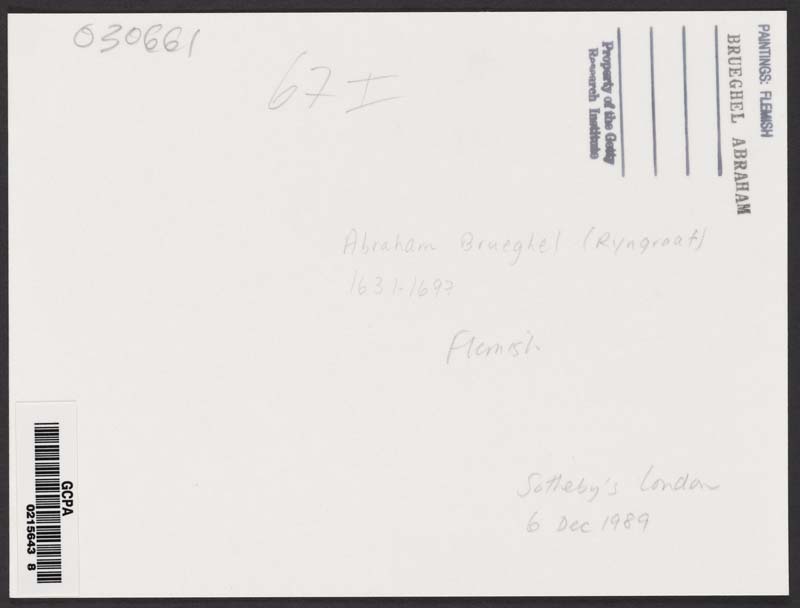 030661
67 I
PAINTINGS: FLEMISH
BRUEGHEL ABRAHAM
Property of the Getty
Research Institute
Abraham Brueghel (Ryngraaf)
1631-1697
Flemish
Sotheby's London
6 Dec 1989
GCPA
0215643 8